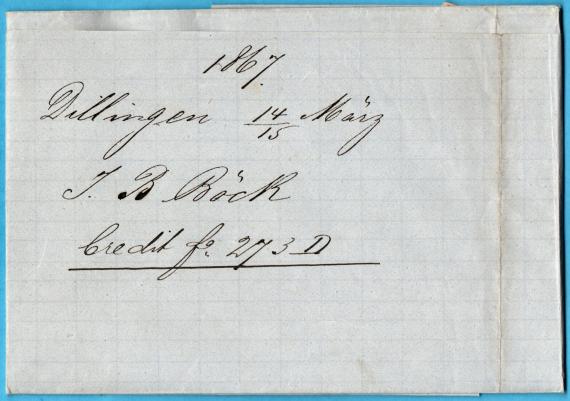 1867
Dillingen 14/15 März
J. B Böck
Credit fo. 273 D